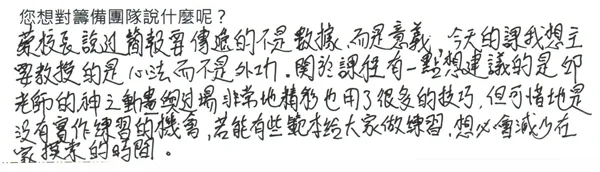 您想對籌備團隊說什麼呢？
葉校長說過簡報要傳遞的不是數據，而是意義，今天的課我想主
要教授的是心法而不是外功。關於課程有一點想建議的是邱
老師的神之動畫與過場非常地精彩也用了很多的技巧，但可惜地是
沒有實作練習的機會，若能有些範本給大家做練習，想必會減少在
家摸索的時間。